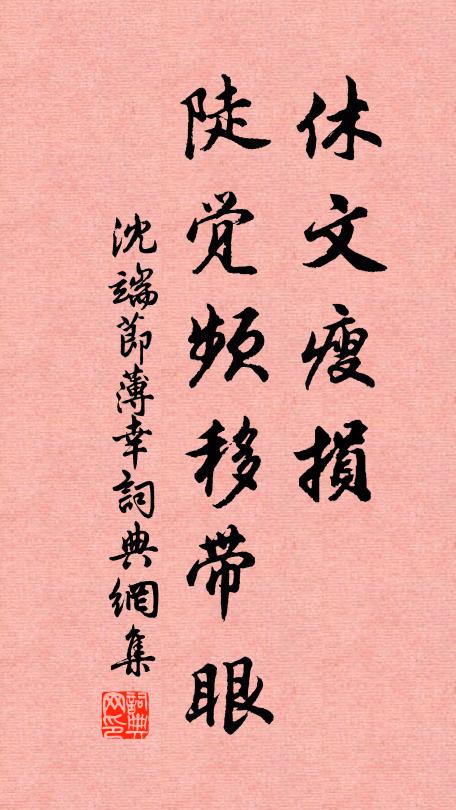 休文瘦損
陡覺頻移帶眼
沈端節薄幸詞典網集
詞典網印